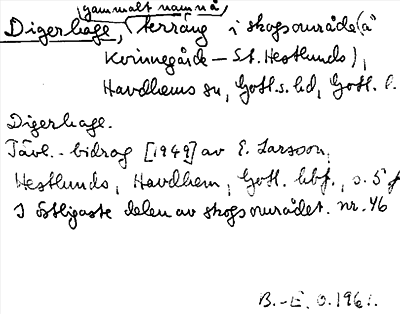 (gammalt namn på)
Digerhage, terräng i skogsområde (å
Kvinnegårde – St. Hestlunds),
Havdhems sn, Gotl. s. hd, Gotl. l.
Digerhage.
Tävl.-bidrag [1949] av E. Larsson,
Hestlunds, Havdhem, Gotl. hbf., s. 5 f
I östligaste delen av skogsområdet. nr. 46
B.-E. O. 1961.